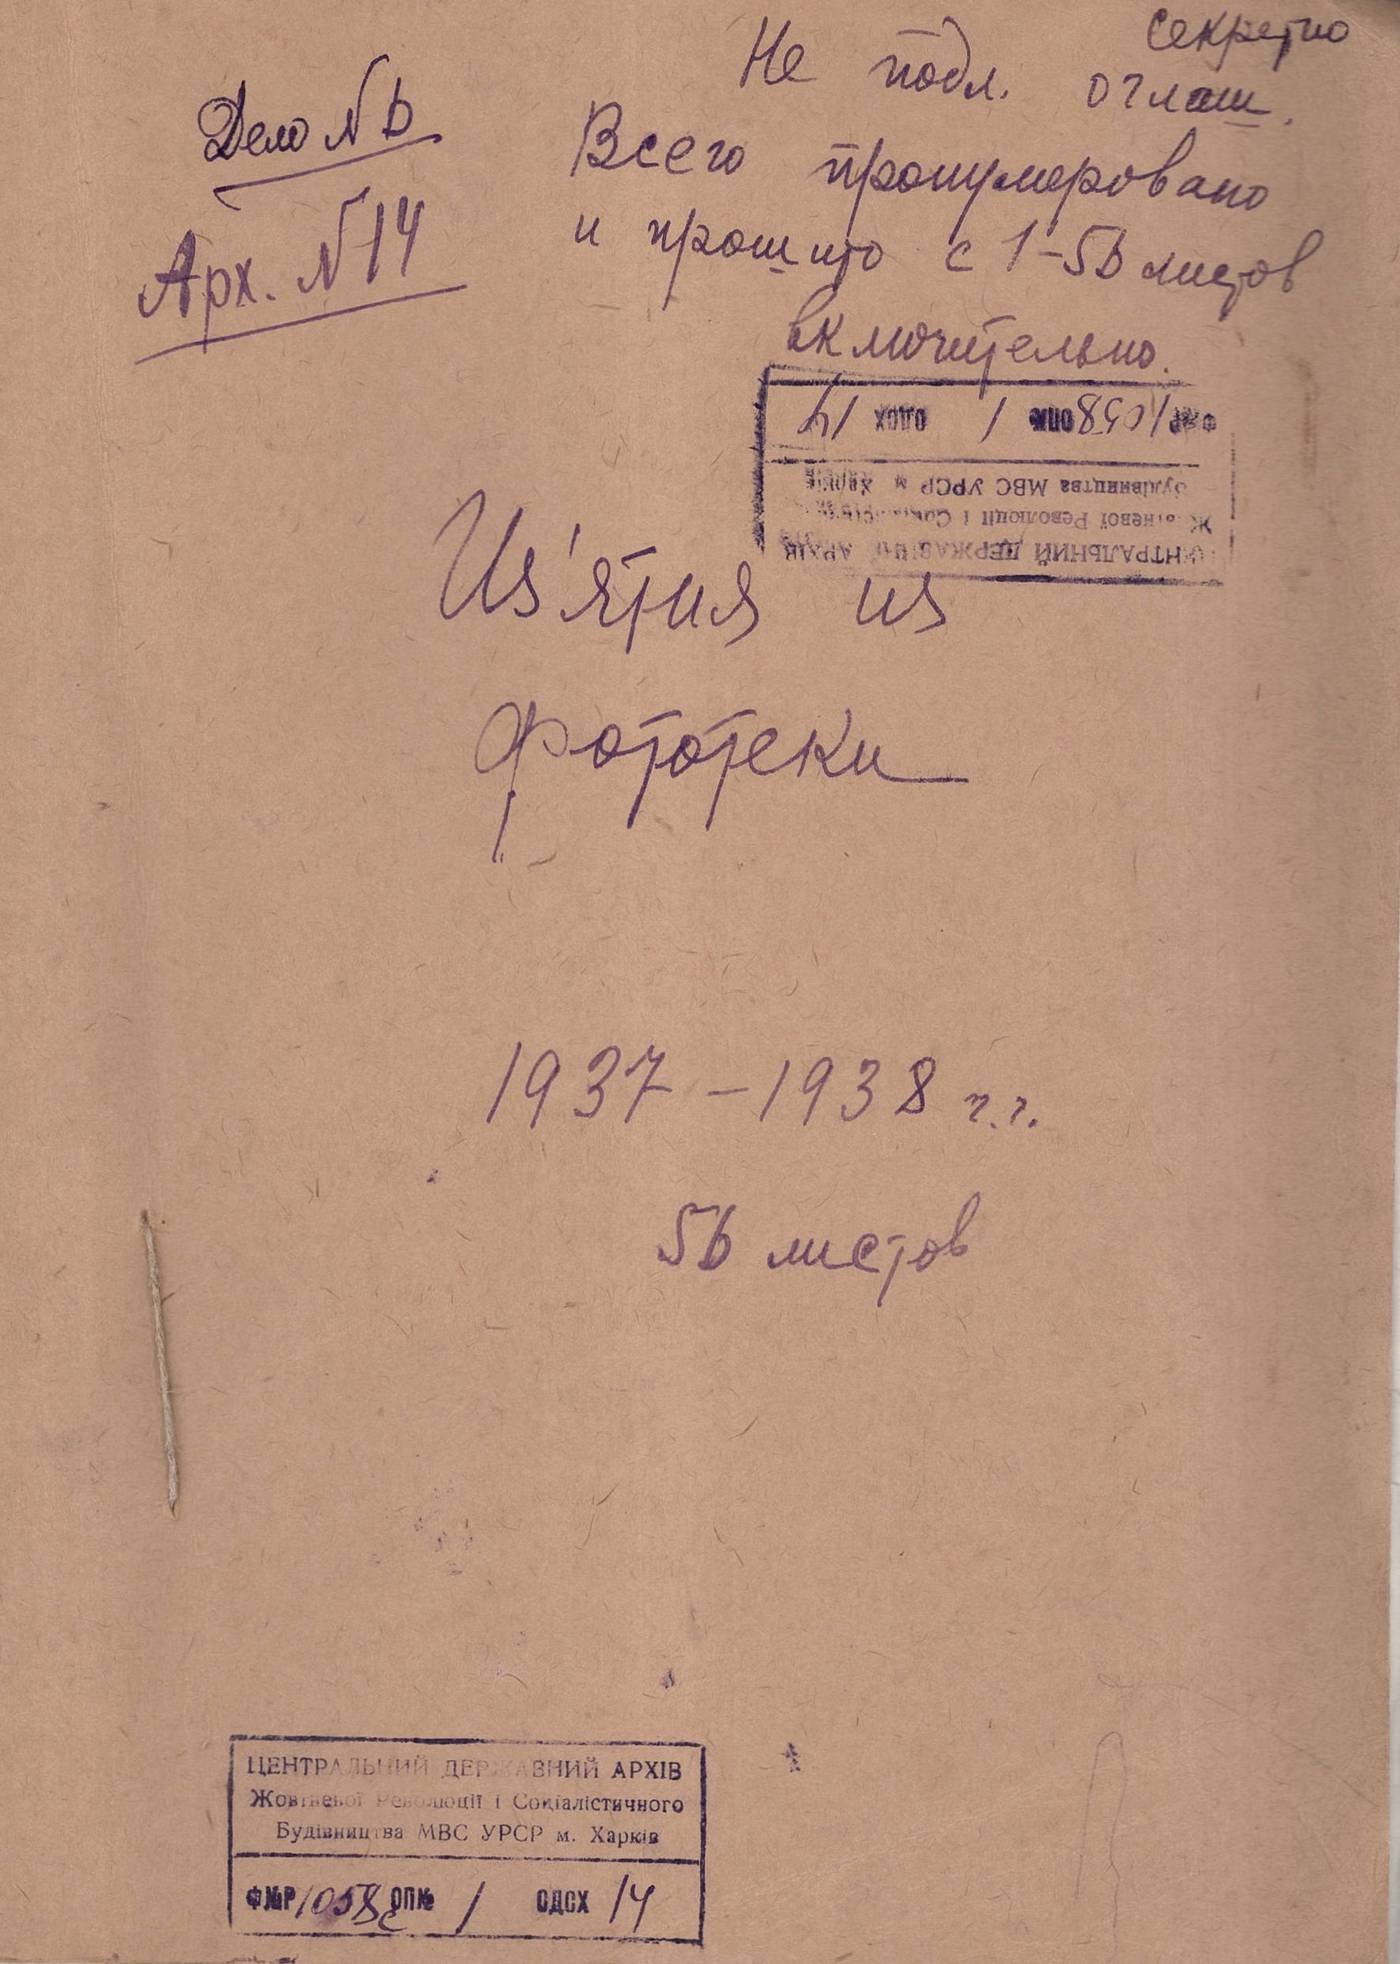 секретно
Не подл. оглаш.
Дело № 6
Всего пронумеровано
и прошито с 1-56 листов
включительно.
Арх. № 14
ФNР 1058 ОП№ 1 ОДСХ 14
Будівництва МВС УРСР м. Харків
Жовтневої Революції і Соціалістичного
ЦЕНТРАЛЬНИЙ ДЕРЖАВНИЙ АРХІВ
Из'ятия из
фототеки
1937 - 1938 г.г.
56 листов
ЦЕНТРАЛЬНИЙ ДЕРЖАВНИЙ АРХІВ
Жовтневої Революції і Соціалістичного
Будівництва МВС УРСР м. Харків
Ф№Р 1058с ОП№ 1 ОДСХ 14